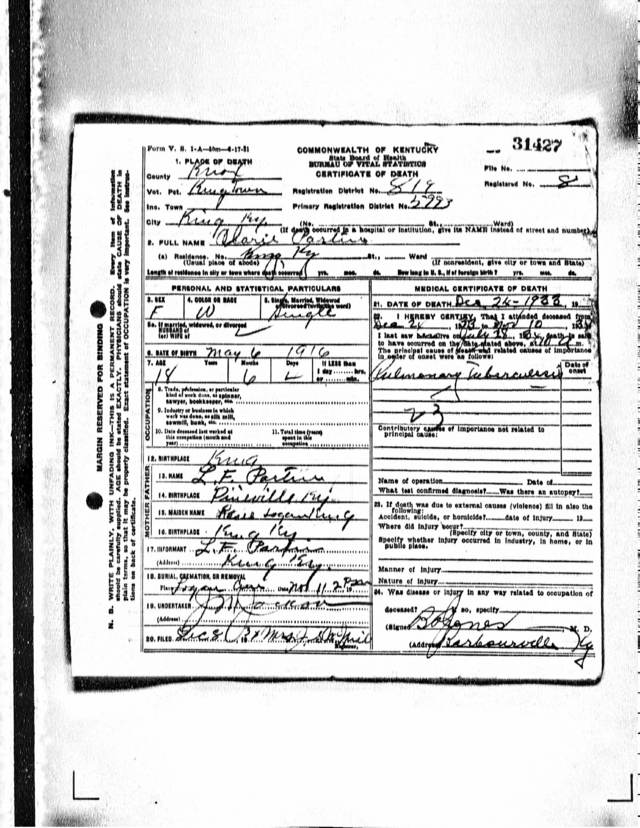 31427
Form V. S. 1-A
COMMONWEALTH OF KENTUCKY
State Board of Health
BUREAU OF VITAL STATISTICS
CERTIFICATE OF DEATH
File No.
Registered No. 8
1. PLACE OF DEATH
County Knox
Vot. Pct. King Town
Registration District No. 819
Ins. Town
Primary Registration District No. 5993
City King Ky. (No. St., Ward)
(If death occurred in a hospital or institution, give its NAME instead of street and number)
2. FULL NAME
(a) Residence. No. King Ky St., Ward
(Usual place of abode) (If nonresident, give city or town and State)
Length of residence in city or town where death occurred yrs. mos. ds. How long in U. S., if of foreign birth? yrs. mos. ds.
PERSONAL AND STATISTICAL PARTICULARS
3. SEX F
4. COLOR OR RACE W
5. Single, Married, Widowed Single
5a. If married, widowed, or divorced
HUSBAND of
(or) WIFE of
6. DATE OF BIRTH May 6 1916
7. AGE Years 18 Months 6 Days
If LESS than
1 day hrs.
or min.
OCCUPATION
8. Trade, profession, or particular
kind of work done, as spinner,
sawyer, bookkeeper, etc.
9. Industry or business in which
work was done, as silk mill,
sawmill, bank, etc.
10. Date deceased last worked at
this occupation (month and
year)
11. Total time (years)
spent in this
occupation
12. BIRTHPLACE King
FATHER
13. NAME L. F. Partin
14. BIRTHPLACE Pineville Ky.
MOTHER
15. MAIDEN NAME
16. BIRTHPLACE King Ky
17. INFORMANT L. F. Partin
(Address) King Ky.
18. BURIAL, CREMATION, OR REMOVAL
Place Logan Nov 11
19. UNDERTAKER
(Address)
20. FILED Mrs.
MEDICAL CERTIFICATE OF DEATH
21. DATE OF DEATH Dec 24-1933
22. I HEREBY CERTIFY, That I attended deceased from
Dec 24 Nov 10
to have occurred on the date stated above, at m.
The principal cause of death and related causes of importance
in order of onset were as follows:
Date of onset
Pulmonary Tuberculosis
23
Contributory causes of importance not related to
principal cause:
Name of operation Date of
What test confirmed diagnosis? Was there an autopsy?
23. If death was due to external causes (violence) fill in also the
following:
Accident, suicide, or homicide? date of injury 19
Where did injury occur?
(Specify city or town, county, and State)
Specify whether injury occurred in industry, in home, or in
public place.
Manner of Injury
Nature of Injury
24. Was disease or injury in any way related to occupation of
deceased? If so, specify
(Signed) Jones M. D.
(Address) Barbourville Ky
MARGIN RESERVED FOR BINDING
N. B. WRITE PLAINLY, WITH UNFADING INK—THIS IS A PERMANENT RECORD. Every item of information
should be carefully supplied. AGE should be stated EXACTLY. PHYSICIANS should state CAUSE OF DEATH in
plain terms, so that it may be properly classified. Exact statement of OCCUPATION is very important. See instruc-
tions on back of certificate.